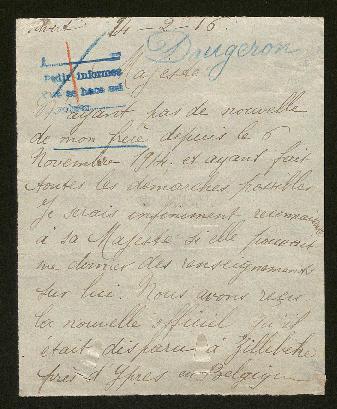 14-2-15.
Daugeron
Majesté
Pedir informes
que se hace así
N'ayant pas de nouvelle
de mon frère depuis le 6
Novembre 1914. et ayant fait
toutes les demarches possibles
Je serais infiniment reconnaissante
à sa Majesté si elle pouvait
me donner des renseignements
sur lui. Nous avons reçu
la nouvelle officiel qu'il
était disparu à Zillebeke
près d'Ypres en Belgique